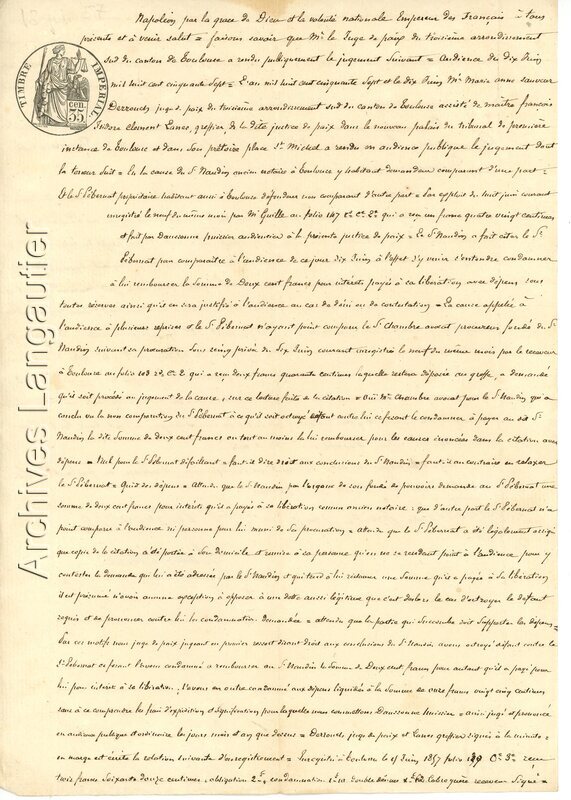 Napoléon, par la grace de Dieu et la volonté nationale Empereur des Français à tous
présents et à venir salut = faisons savoir que Mr le Juge de paix du troisième arrondissement
sud du canton de Toulouse a rendu publiquement le jugement suivant = Audience du dix Juin
mil huit cent cinquante sept = L'an mil huit cent cinquante sept et le dix Juin, Mr Marie anne sauveur
juge de paix du troisième arrondissement sud du canton de Toulouse assisté de maître françois
Isidore clement Lanes, greffier de la dite justice de paix dans le nouveau palais du tribunal de première
instance de Toulouse et dans son prétoire place St Michel a rendu en audience publique le jugement dont
la teneur suit = En la cause du Sr Naudin ancien notaire à Toulouse y habitant demandeur comparant d'une part =
Et le Sr propriétaire habitant aussi à toulouse défendeur non comparant d'autre part = Par exploit du huit juin courant
enregistré le neuf du même mois par Mr Guille au folio 147 qui a reçu un franc quatre vingt centimes
et fait par huissier audiencier à la présente justice de paix = Le Sr Naudin a fait citer le Sr
pour comparaître à l'audience de ce jour dix Juin à l'effet d'y venir s'entendre condamner
à lui rembourser la Somme de Deux cent francs pour intérêts payés à sa libération avec dépens sous
toutes réserves ainsi qu'il en sera justifié à l'audience au cas de déni ou de contestation = La cause appelée à
l'audience à plusieurs reprises et le Sr n'ayant point comparu le Sr Chambre avocat procureur fondé du Sr
Naudin suivant sa procuration sous seing privé du six Juin courant enregistré le neuf du même mois par le receveur
à Toulouse au folio 103 qui a reçu deux francs quarante centimes laquelle restera déposée au greffe, a demandé
qu'il soit procédé au jugement de la cause, sur ce lecture faite de la citation = Oui Mr Chambre avocat pour le Sr Naudin qui a
conclu vu la non comparution du Sr à ce qu'il soit octroyé défaut contre lui ce faisant le condamner à payer au dit Sr
Naudin la dite Somme de deux cent francs ou tout au moins la lui rembourser pour les causes énoncées dans la citation avec
dépens = Nul pour le Sr défaillant = faut-il dire droit aux conclusions du Sr Naudin = faut-il au contraire en relaxer
le Sr = Quid des dépens = Attendu que le Sr Naudin par l'organe de son fondé de pouvoirs demande au Sr une
somme de deux cent francs pour intérêts qu'il a payés à sa libération comme ancien notaire : que d'autre part le Sr n'a
point comparu à l'audience ni personne pour lui muni de sa procuration = attendu que le Sr a été légalement assigné
que copie de la citation a été portée à son domicile et remise à sa personne qu'en ne se rendant point à l'audience pour y
contester la demande qui lui a été adressée par le Sr Naudin et qui tend à lui réclamer une somme qu'il a payée à sa libération
il est présumé n'avoir aucune exception à opposer à une dette aussi légitime que c'est dès lors le cas d'octroyer le défaut
requis et de prononcer contre lui les condamnations demandées = attendu que la partie qui succombe doit supporter les dépens =
Par ces motifs nous juge de paix jugeant en premier ressort disant droit aux conclusions du Sr Naudin avons octroyé défaut contre le
Sr ce faisant l'avons condamné à rembourser au Sr Naudin la Somme de Deux cent francs pour autant qu'il a payé pour
lui pour intérêts à sa libération, l'avons en outre condamné aux dépens liquidés à la somme de onze francs vingt cinq centimes
sans à ce comprendre les frais d'expédition et signification pour laquelle nous commettons huissier = ainsi jugé et prononcé
en audience publique et ordinaire les jours mois et an que dessus = juge de paix et Lanes greffier signés à la minute =
en marge est écrite la relation suivante d'enregistrement = Enregistré à Toulouse le Juin 1857 folio reçu
trois francs soixante douze centimes, obligation condamnation double décime receveur Signé =
TIMBRE IMPÉRIAL
cen.
35
Archives Langautier